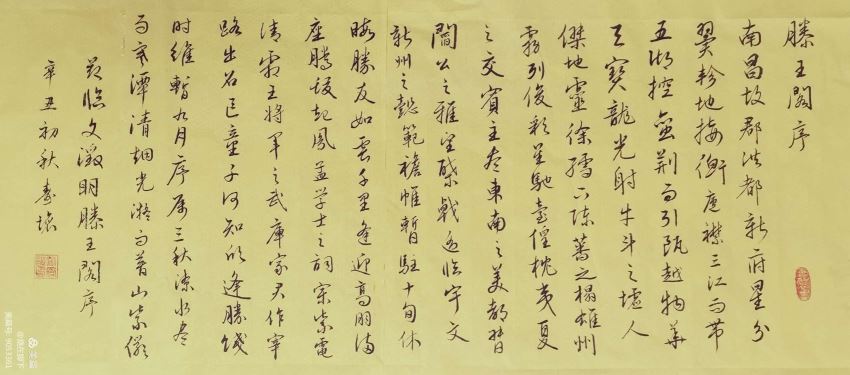 滕王閣序
南昌故郡洪都新府星分
翼軫地接衡廬襟三江而帶
五湖控蠻荊而引甌越物華
天寶龍光射牛斗之墟人
傑地靈徐孺下陳蕃之榻雄州
霧列俊彩星馳臺隍枕夷夏
之交賓主盡東南之美都督
閻公之雅望棨戟遙臨宇文
新州之懿範襜帷暫駐十旬休
暇勝友如雲千里逢迎高朋滿
座騰蛟起鳳孟學士之詞宗紫電
清霜王將軍之武庫家君作宰
路出名區童子何知躬逢勝餞
時維暫九月序屬三秋潦水盡
而寒潭清烟光凝而暮山紫儼
臨文徵明滕王閣序
辛丑初秋
美篇号:9053391